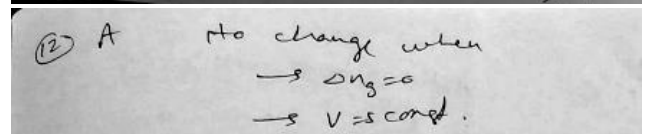 (12) A No change when
→ Δng = 0
→ V = const.